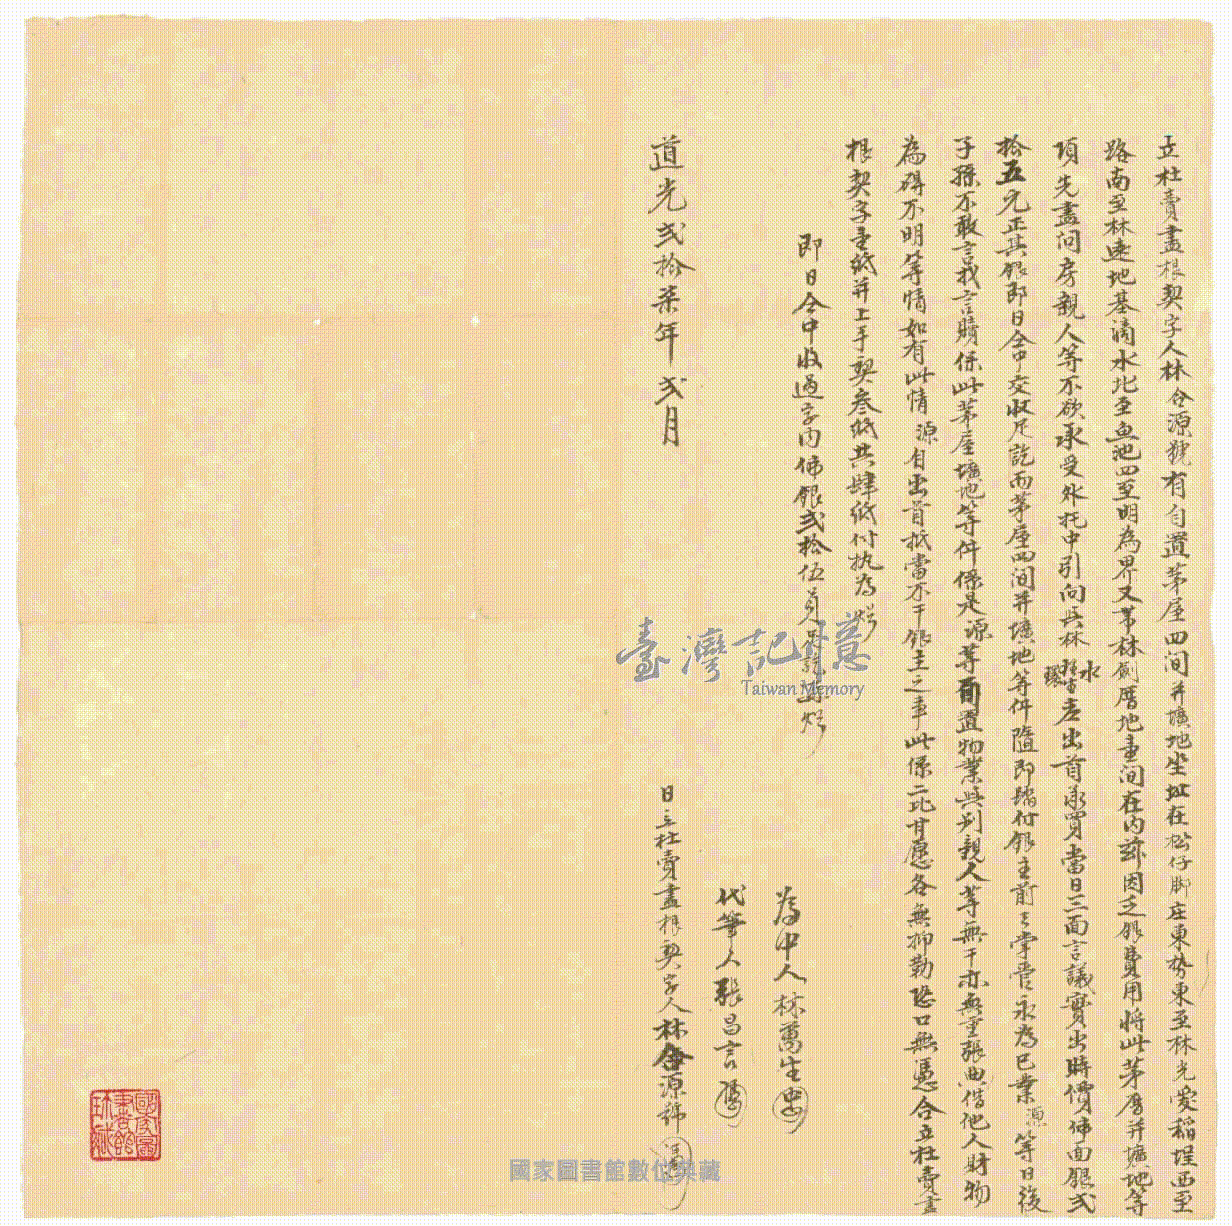 立杜賣盡根契字人林合源號有自置茅屋四间并壙地坐址在松仔脚庄東勢東至林光愛稻埕西至
路南至林速地基滴水北至魚池四至明為界又帯林劍厝地壹间在内茲因乏銀費用將此茅厝并壙地等
項先盡问房親人等不欲承受外托中引向與林水出首承買當日三面言議實出時價佛面銀弍
拾五元正其銀即日仝中交收足訖而茅屋四间并壙地等件隨即踏付銀主前去掌管永為己業源等日後
子孫不敢言找言贖保此茅屋壙地等件係是源等自置物業與別親人等無干亦無重張典借他人財物
為碍不明等情如有此情源自出首抵當不干銀主之事此係二比甘愿各無抑勒恐口無憑合立杜賣盡
根契字壹紙并上手契叁紙共肆紙付执為炤
即日仝中收過字内佛銀弍拾伍員足訖再炤
為中人林萬生
代筆人張昌言
道光弍拾柒年弍月
日立杜賣盡根契字人林合源號
臺灣記憶
Taiwan Memory
國家圖書館數位典藏
國家圖書館珍藏